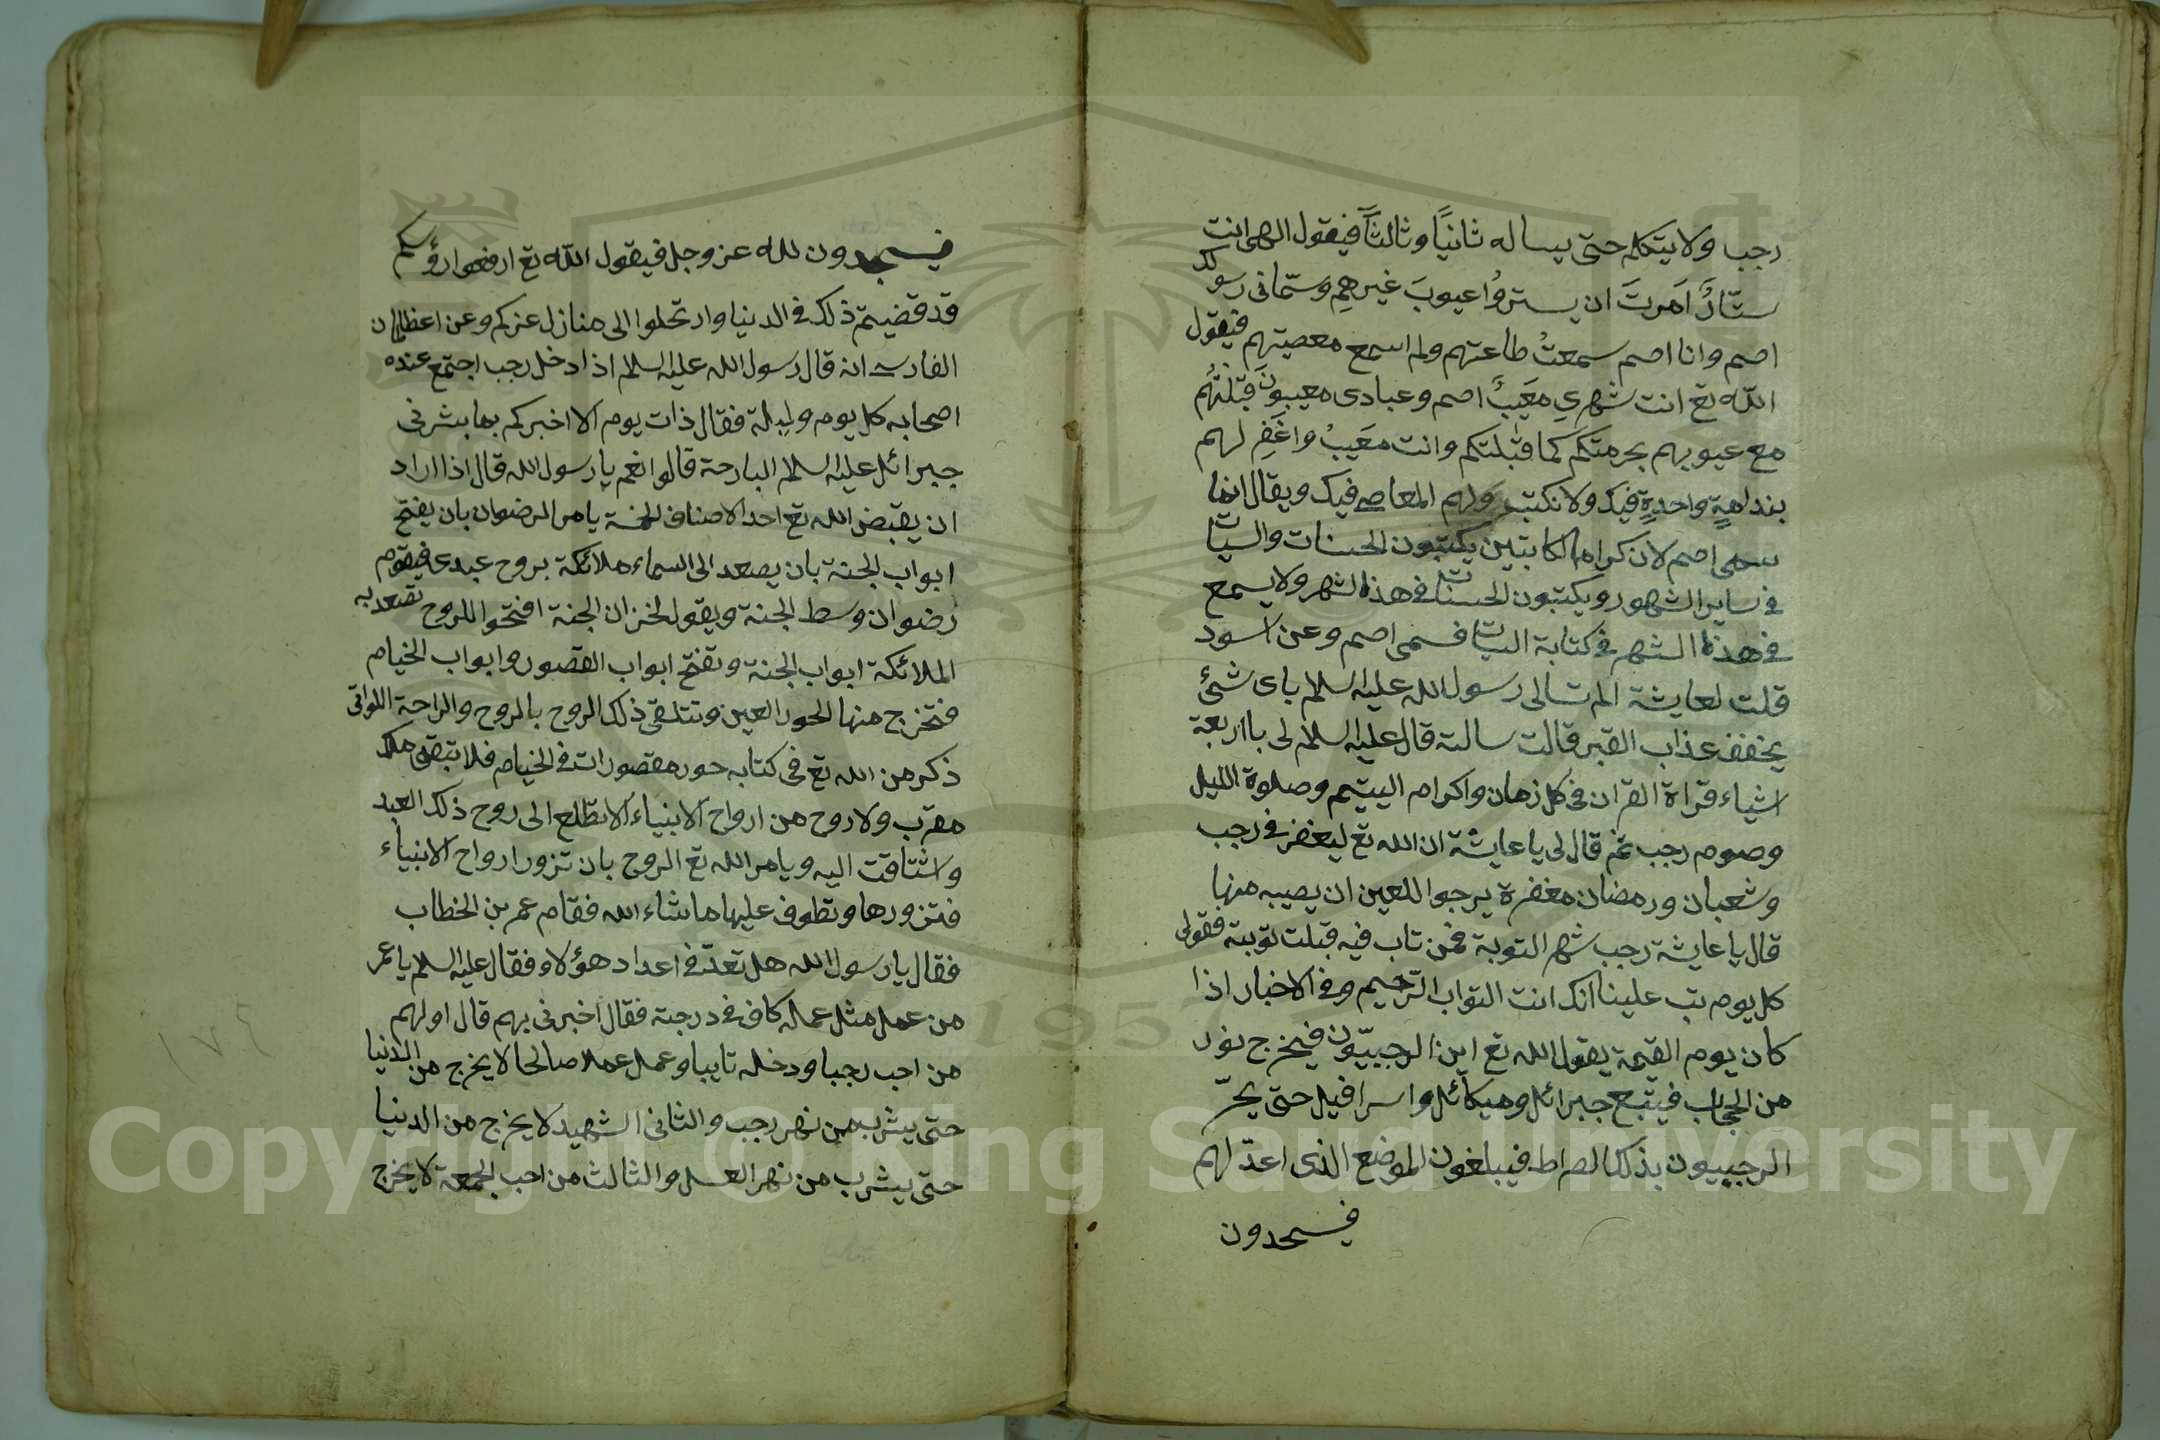 رجب ولا يتكلم حتى يساله ثانيًا وثالثًا فيقول الهى انت
ستّارٌ اَمرتَ ان يستروُا عيوبَ غيرهِم وسمّانى رسولك
اصم وانا اصم سمعتُ طاعتهم ولم اسمع معصيتهم فيقول
الله تع انت شهرىِ معَيَبٌ اصم وعبادى معيبونَ قبّلتُهم
مع عيوبهم بحرمتكم كما قبلتكم وانت معَيبْ واغفِر لهم
بندامةٍ واحدةٍ فيك ولا نكتب ولهم المعاصى فيك ويقال انما
سمى اصم لان كراما كاتبين يكتبون الحسنات والسيات
فى ساير الشهور ويكتبون الحسنات فى هذا الشهر ولا يسمع
فى هذا الشهر فى كتابة السيات فسمى اصم وعن اسود
قلت لعايشة الم تسالى رسول الله عليه السلام باى شئ
يخفف عذاب القبر قالت سالته قال عليه السلام لى باربعة
اشياء قراة القران فى كل زمان واكرام اليتيم وصلوة الليل
وصوم رجب ثم قال لى يا عايشة ان الله تع ليغفر فى رجب
وشعبان ورمضان مغفرة يرجوا اللعين ان يصيبه منها
قال يا عايشة رجب شهر التوبة فمن تاب فيه قبلت توبته فقولى
كل يوم تب علينا انك انت التواب الرّحيم وفى الاخبار اذا
كان يوم القيمة يقول الله تع اين الرجبيّون فيخرج نور
من الحجاب فيتبع جبرائل وميكائل واسرافيل حتى يمرّ
الرجبيون بذلك الصراط فيبلغون الموضع الذى اعدّ لهم
فيسجدون
فيسجدون لله عز وجل فيقول الله تع ارفعوا رؤسكم
قد قضيتم ذلك فى الدنيا وارتحلوا الى منازل عزكم وعن سلمان
الفارسى انه قال رسول الله عليه السلام اذا دخل رجب اجتمع عنده
اصحابه كل يوم وليلة فقال ذات يوم الا اخبركم بما بشرنى
جبرائل عليه السلام البارحة قالوا نعم يا رسول الله قال اذا اراد
ان يقبض الله تع احد الاصناف الخمسة يامر الرضوان بان يفتح
ابواب الجنة بان يصعد الى السماء ملائكة بروح عبدى فيقوم
رضوان وسط الجنة ويقول لخزان الجنة افتحوا للروح تصعد به
الملائكة ابواب الجنة وتفتح ابواب القصور وابواب الخيام
فتخرج منها الحور العين وتتلقى ذلك الروح بالروح والراحة اللواتى
ذكر من الله تع فى كتابه حور مقصورات فى الخيام فلا تبقى ملك
مقرب ولا روح من ارواح الانبياء الا تطلع الى روح ذلك العبد
واشتاقت اليه ويامر الله تع الروح بان تزور ارواح الانبياء
فتزورها وتطوف عليها ما شاء الله فقام عمر بن الخطاب
فقال يا رسول الله هل تعدّ فى اعداد هؤلاء فقال عليه السلم يا عمر
من عمل مثل عمله كان فى درجته فقال اخبرنى بهم قال اولهم
من احب رجبا ودخله تايبا وعمل عملا صالحا لا يخرج من الدنيا
حتى يشرب من نهر رجب والثانى الشهيد لا يخرج من الدنيا
حتى يشرب من نهر العسل والثالث من احب الجمعة لا يخرج
١٧٤
1957
Copyright © King Saud University